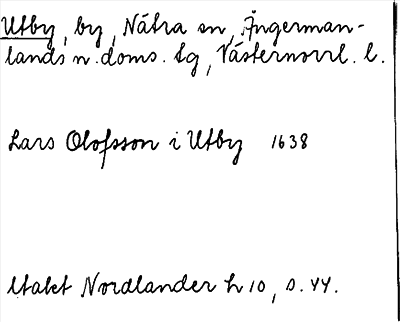 Utby, by, Nätra sn, Ångerman-
lands n. doms. tg, Västernorrl. l.
Lars Olofsson i Utby 1638
Utakt Nordlander h 10, s. 44.